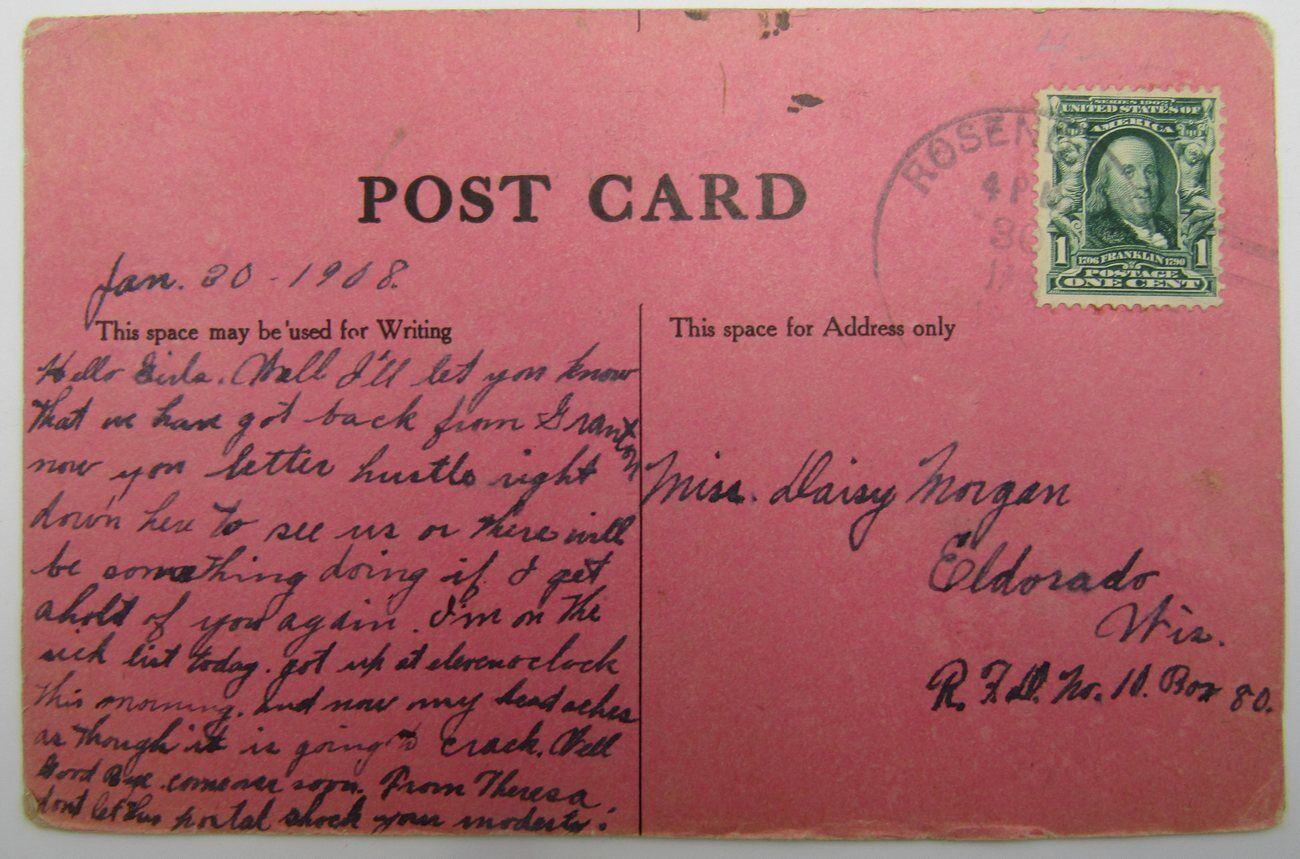 POST CARD
ROSEN
4 P
SERIES 1902
UNITED STATES OF
AMERICA
1 1
1706 FRANKLIN 1790
POSTAGE
ONE CENT
Jan. 30 - 1908.
This space may be used for Writing
Hello Girls. Well I'll let you know
that we have got back from Granton
now you better hustle right
down here to see us or there will
be something doing if I get
ahold of you again. I'm on the
sick list today. got up at eleven o clock
this morning. and now my head aches
as though it is going to crack. Well
Good Bye come over soon. From Theresa.
dont let this postal shock your modesty.
This space for Address only
Miss. Daisy Morgan
Eldorado
Wis.
R. F. D. No. 10. Box 80.